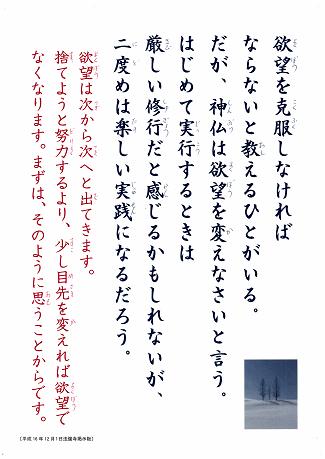 欲望を克服しなければ
ならないと教えるひとがいる。
だが、神仏は欲望を変えなさいと言う。
はじめて実行するときは
厳しい修行だと感じるかもしれないが、
二度めは楽しい実践になるだろう。
欲望は次から次へと出てきます。
捨てようと努力するより、少し目先を変えれば欲望で
なくなります。まずは、そのように思うことからです。
［平成16年12月1日法燈寺掲示板］